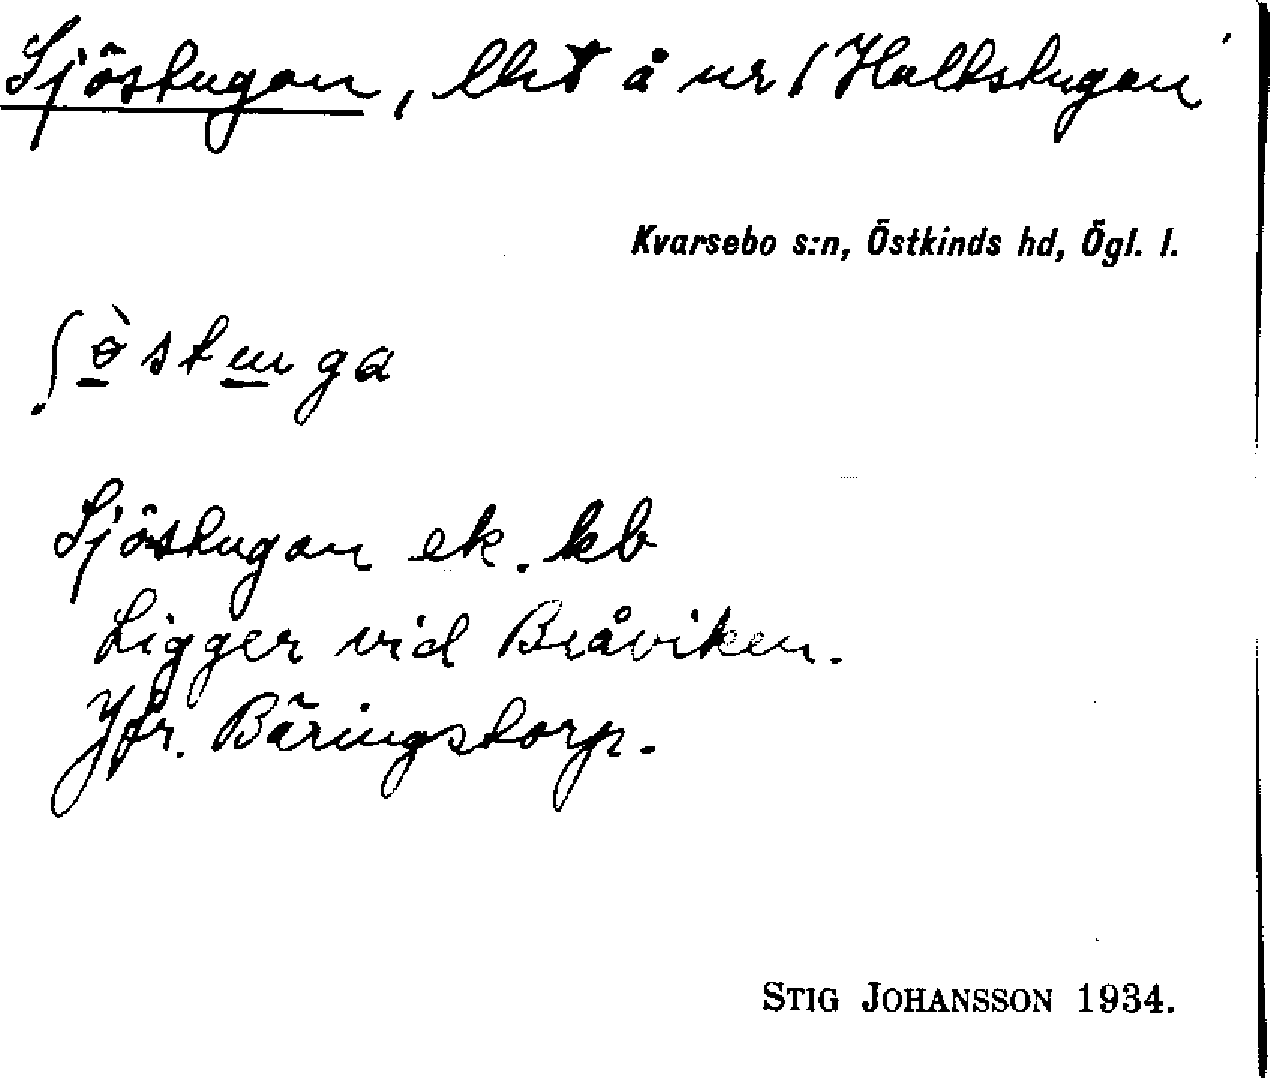 Sjöstugan, lht å nr 1 Hultstugan
Kvarsebo s:n, Östkinds hd, Ögl. l.
Sjöstugan ek. kb
Ligger vid Bråviken.
Jfr. Bäringstorp.
STIG JOHANSSON 1934.